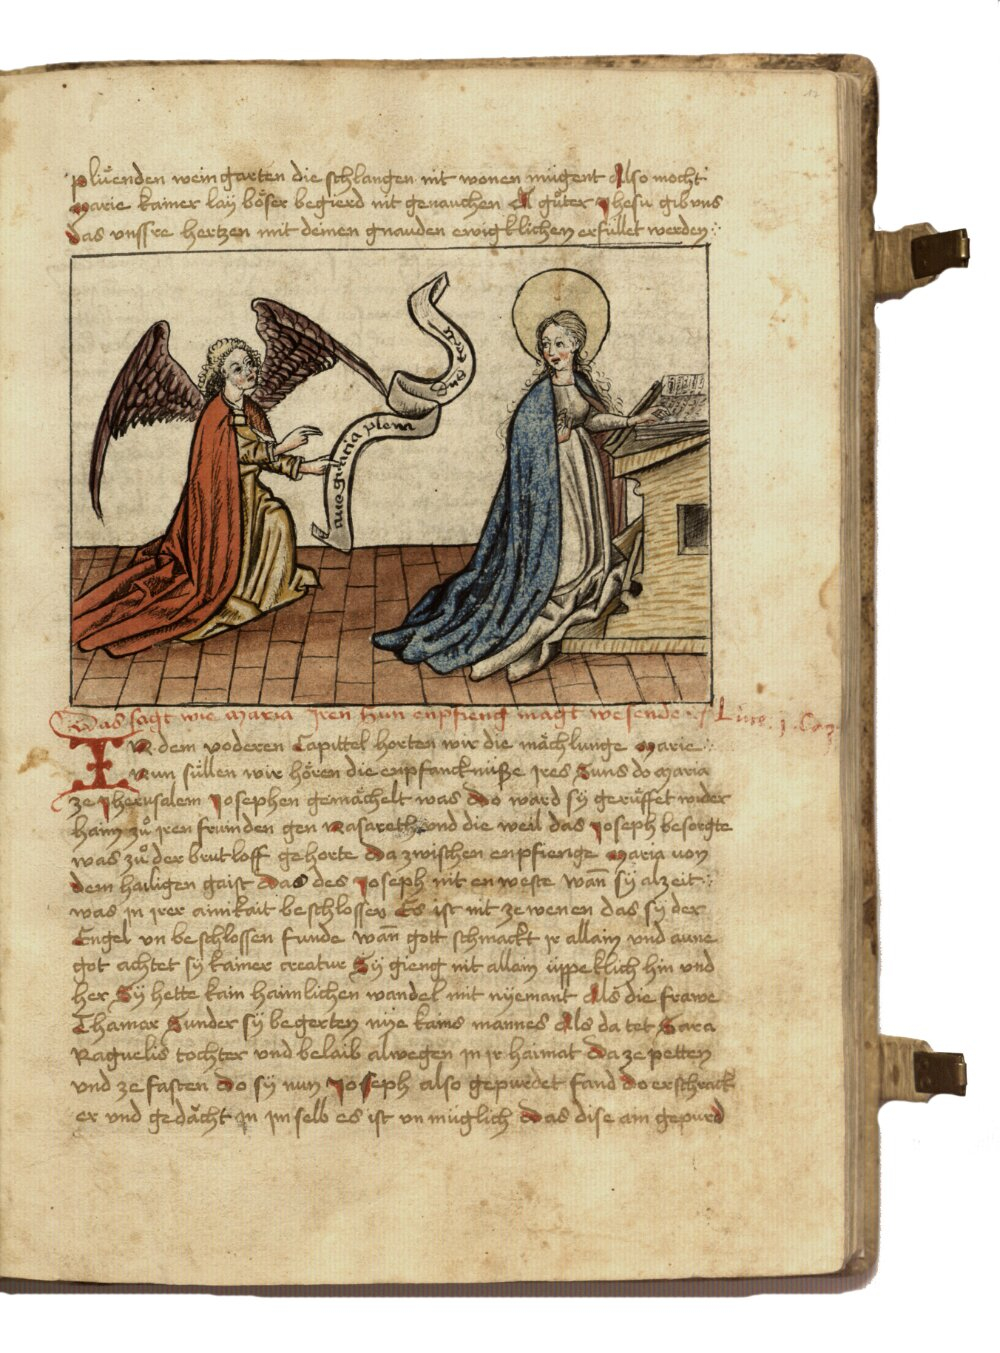 plüenden weingarten die schlangen nit wonen mügent Also mocht
Marie kainer lay böser begierd nit genauchen A güter Jhesu gib uns
das unssre hertzen mit deinen gnauden ewigklichen erfüllet werden
ave gracia plena
dns tecu
Das sagt wie maria Jren Sun enpfieng magt wesende Luce j Cap
IN dem voderen Capittel horten wir die mächlunge Marie
Nun süllen wir hören die enpfancknüße jres Suns do Maria
ze Jherusalem Josephen gemächelt was Do ward sy gerüffet wider
haim zů jren frunden gen Nasareth und die weil das Joseph besorgte
was zů der brutloff gehorte Da zwischen enpfienge Maria von
dem hailigen gaist Das des Joseph nit en weste wañ sy alzeit
was jn jrer ainikait beschlossen Es ist nit ze wenen das sy der
Engel vn beschlossen funde wañ gott schmackt jr allain vnd aune
got achtet sy kainer creatur Sy gieng nit allain üppeklich hin vnd
her Sy hette kain haimlichen wandel mit nyemant Als die frawe
Thamar Sunder sy begerten nye kains mannes Als da tet Sara
Raguelis tochter vnd belaib alwegen jn jr haimat Da ze petten
vnd ze fasten Do sy nun Joseph also gepurdet fand Do erschrack
er vnd gedächt jn jm selb es ist vn müglich Das dise ain gepurd